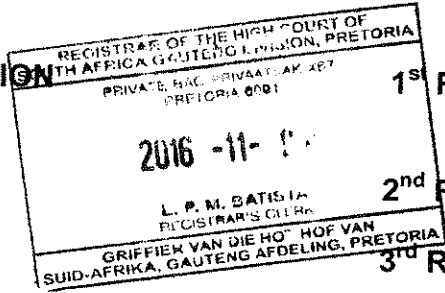 REGISTRAR OF THE HIGH COURT OF
TH AFRICA GAUTENG DIVISION, PRETORIA
ION
PRIVATE BAG, PRIVAATSAK X67
PRETORIA 0001
1st
2016 -11-
L. P. M. BATISTA
2nd R
REGISTRAR'S CLERK
GRIFFIER VAN DIE HOF VAN
SUID-AFRIKA, GAUTENG AFDELING, PRETORIA
3rd R